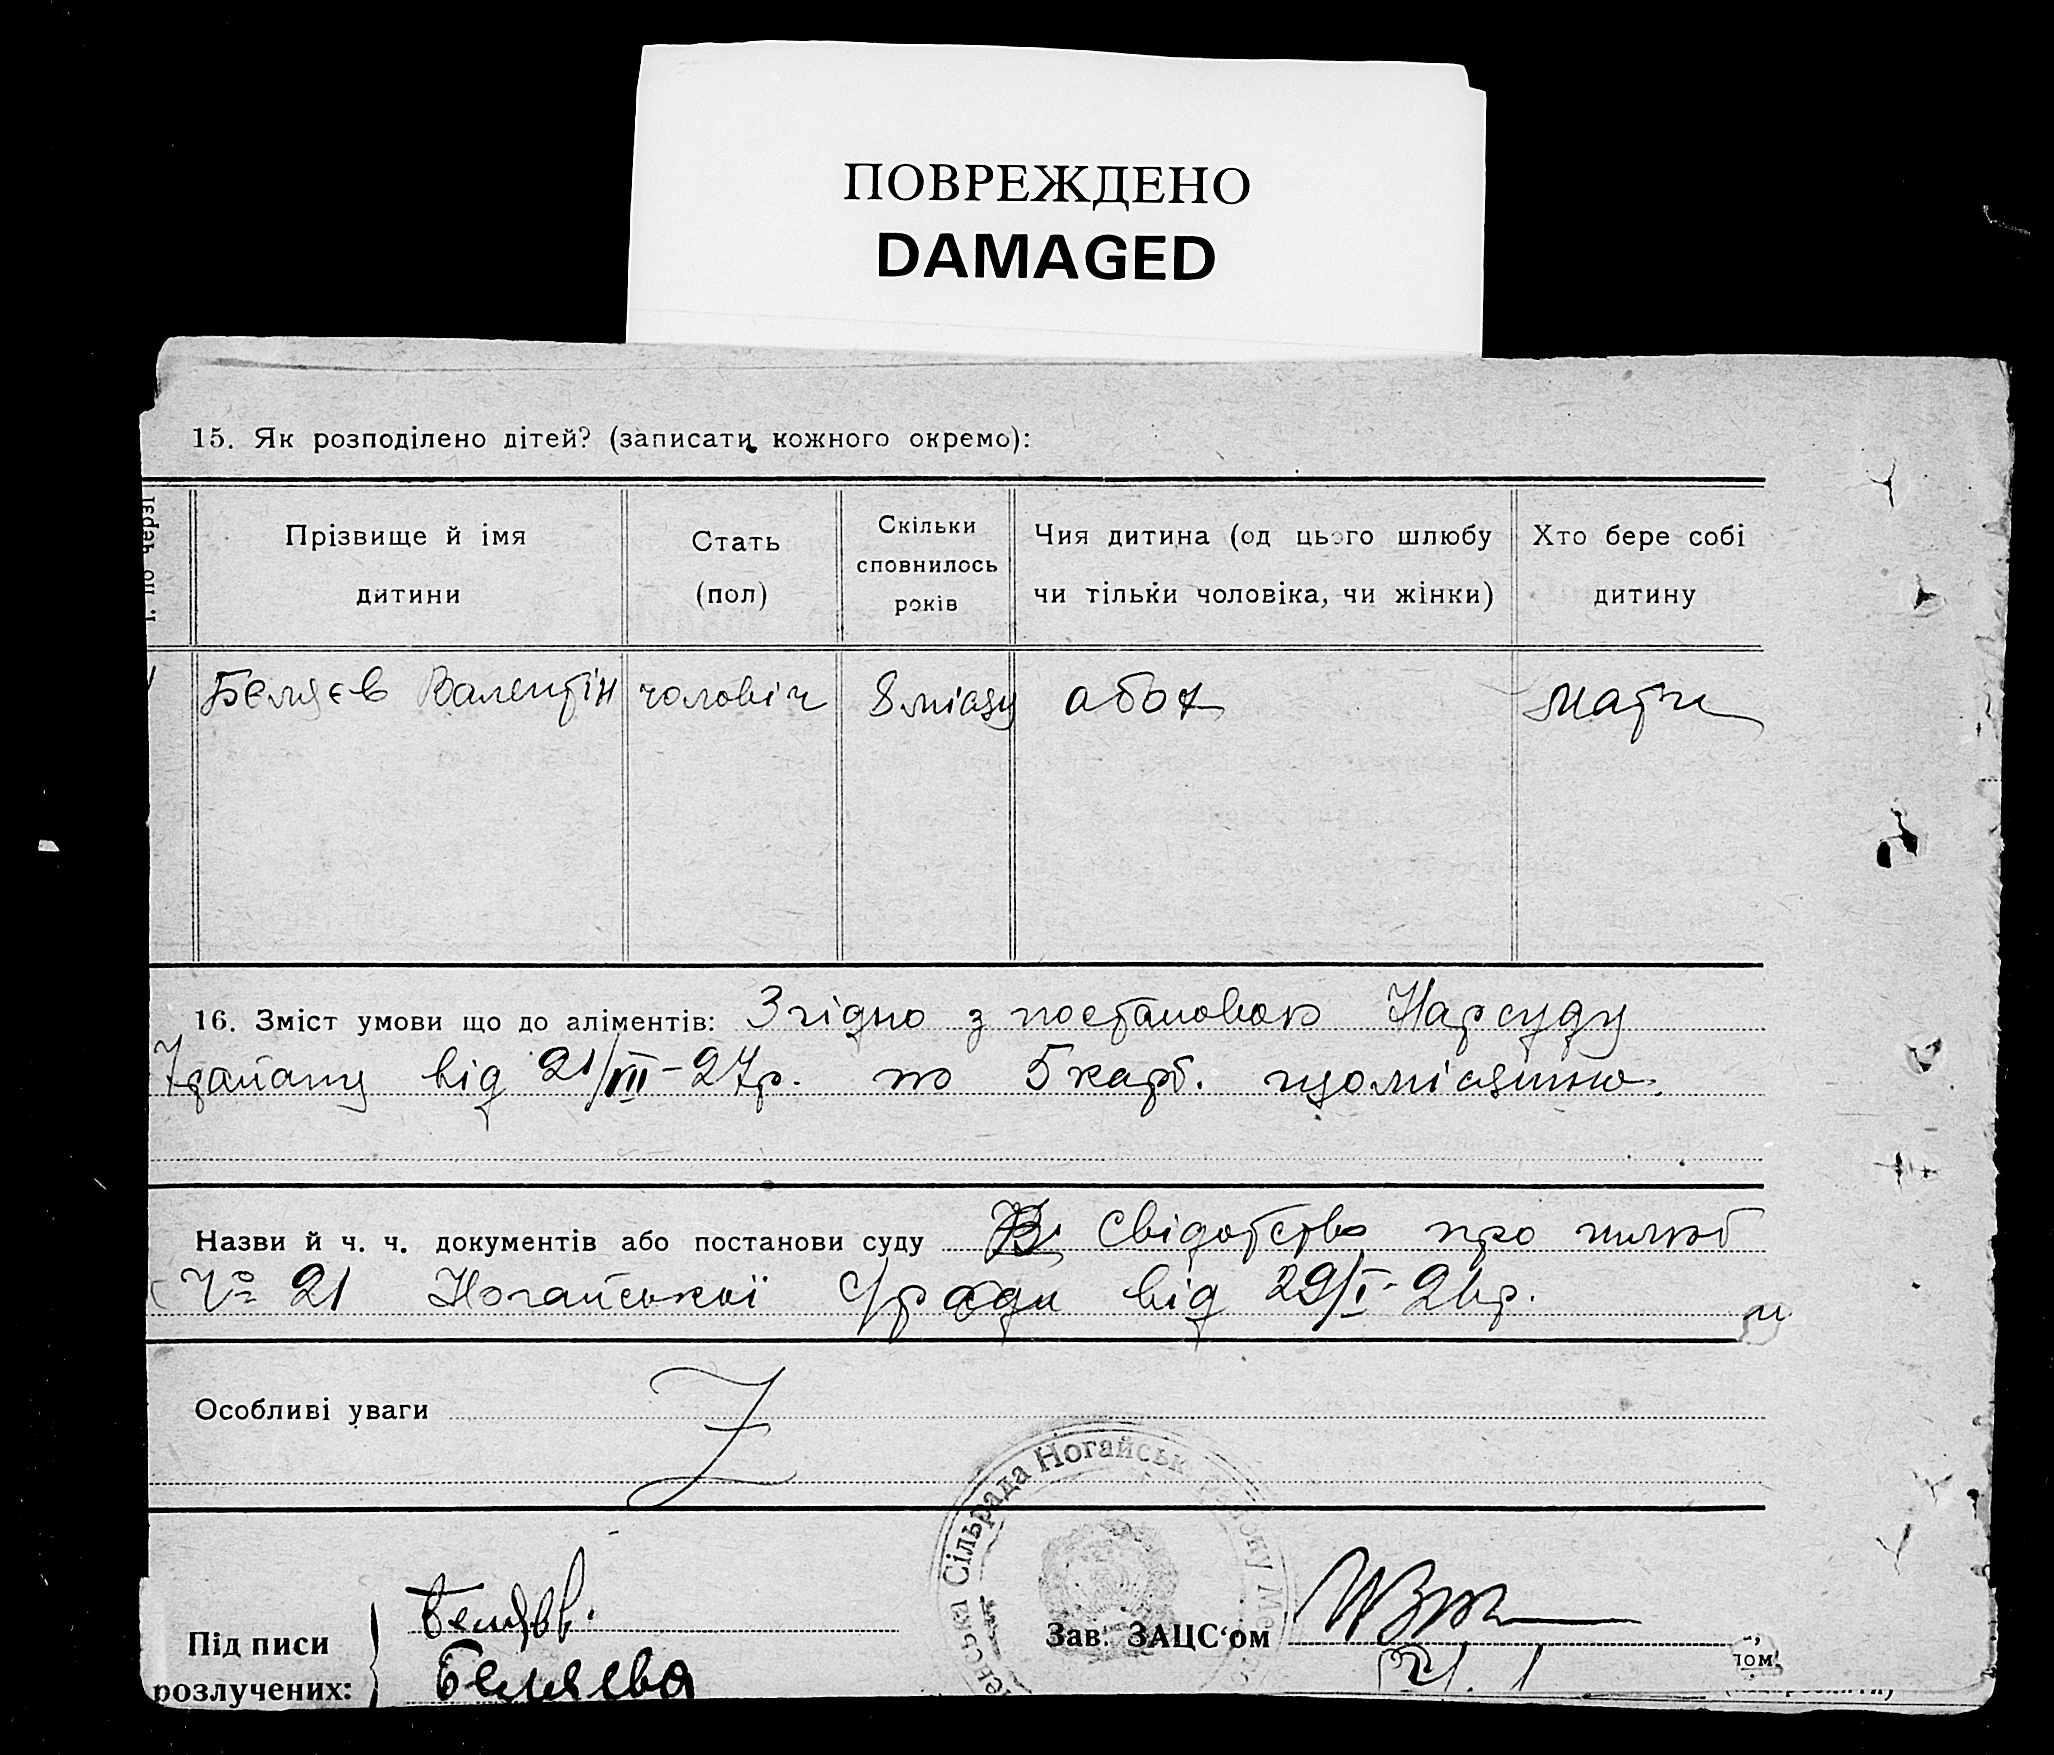 ПОВРЕЖДЕНО
DAMAGED
15. Як розподілено дітей? (записати кожного окремо):
Прізвище й імя дитини
Стать (пол)
Скільки сповнилось років
Чия дитина (од цього шлюбу чи тільки чоловіка, чи жінки)
Хто бере собі дитину
Беляєв Валентін чоловіч 8 місяц обох мати
16. Зміст умови що до аліментів: Згідно з постановою Нарсуду
від 21/VII-27р. по 5 карб. щомісячно.
Назви й ч. ч. документів або постанови суду Свідотство про шлюб
№ 21 Ногайської с/ради від 29/I-26р.
Особливі уваги Z
Сільрада Ногайськ
Під писи розлучених:
Беляєв.
Беляева
Зав. ЗАЦС‘ом